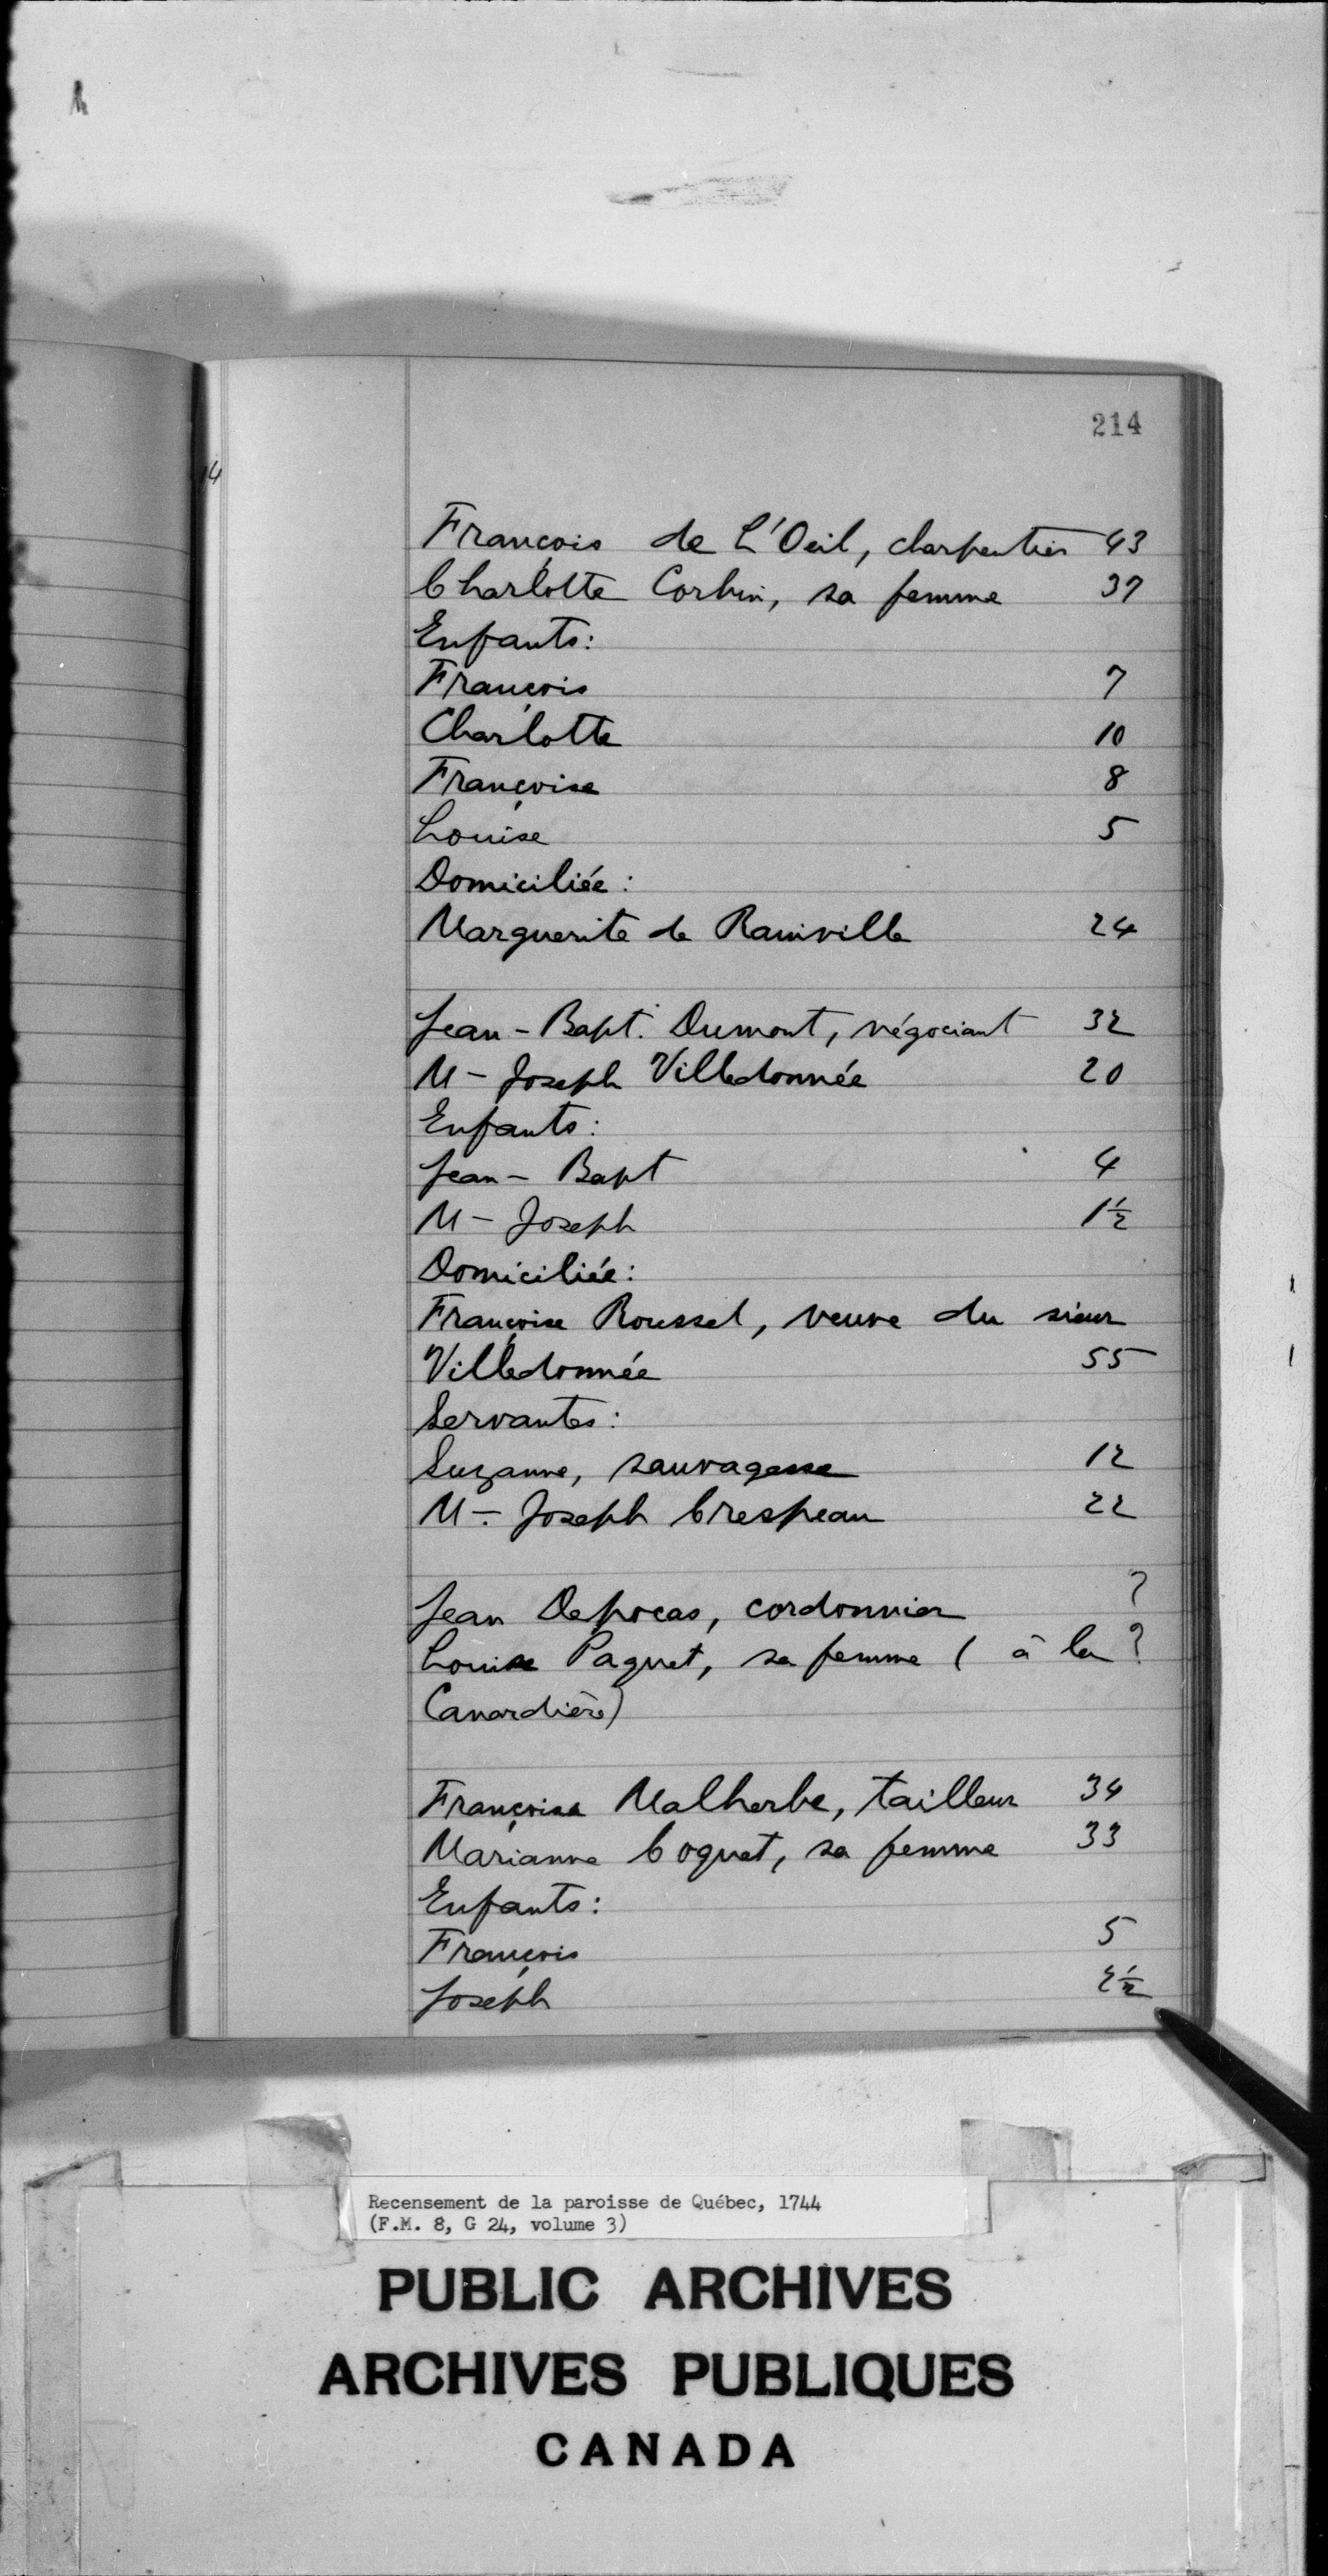 214
14
François de L'Oeil, charpentier 43
Charlotte Corbin, sa femme 37
Enfants:
François 7
Charlotte 10
Françoise 8
Louise 5
Domiciliée:
Marguerite de Rainville 24
Jean-Bapt. Dumont, négociant 32
M-Joseph Villedonnée 20
Enfants:
Jean-Bapt 4
M-Joseph 1½
Domiciliée:
Françoise Roussel, veuve du sieur
Villedonnée 55
Servantes:
Suzanne, sauvagesse 12
M-Joseph Crespeau 22
Jean Depocas, cordonnier ?
Louise Paquet, sa femme (à la ?
Canardière)
Françoise Malherbe, tailleur 34
Marianne Coquet, sa femme 33
Enfants:
François 5
Joseph 2½
Recensement de la paroisse de Québec, 1744
(F.M. 8, G 24, volume 3)
PUBLIC ARCHIVES
ARCHIVES PUBLIQUES
CANADA